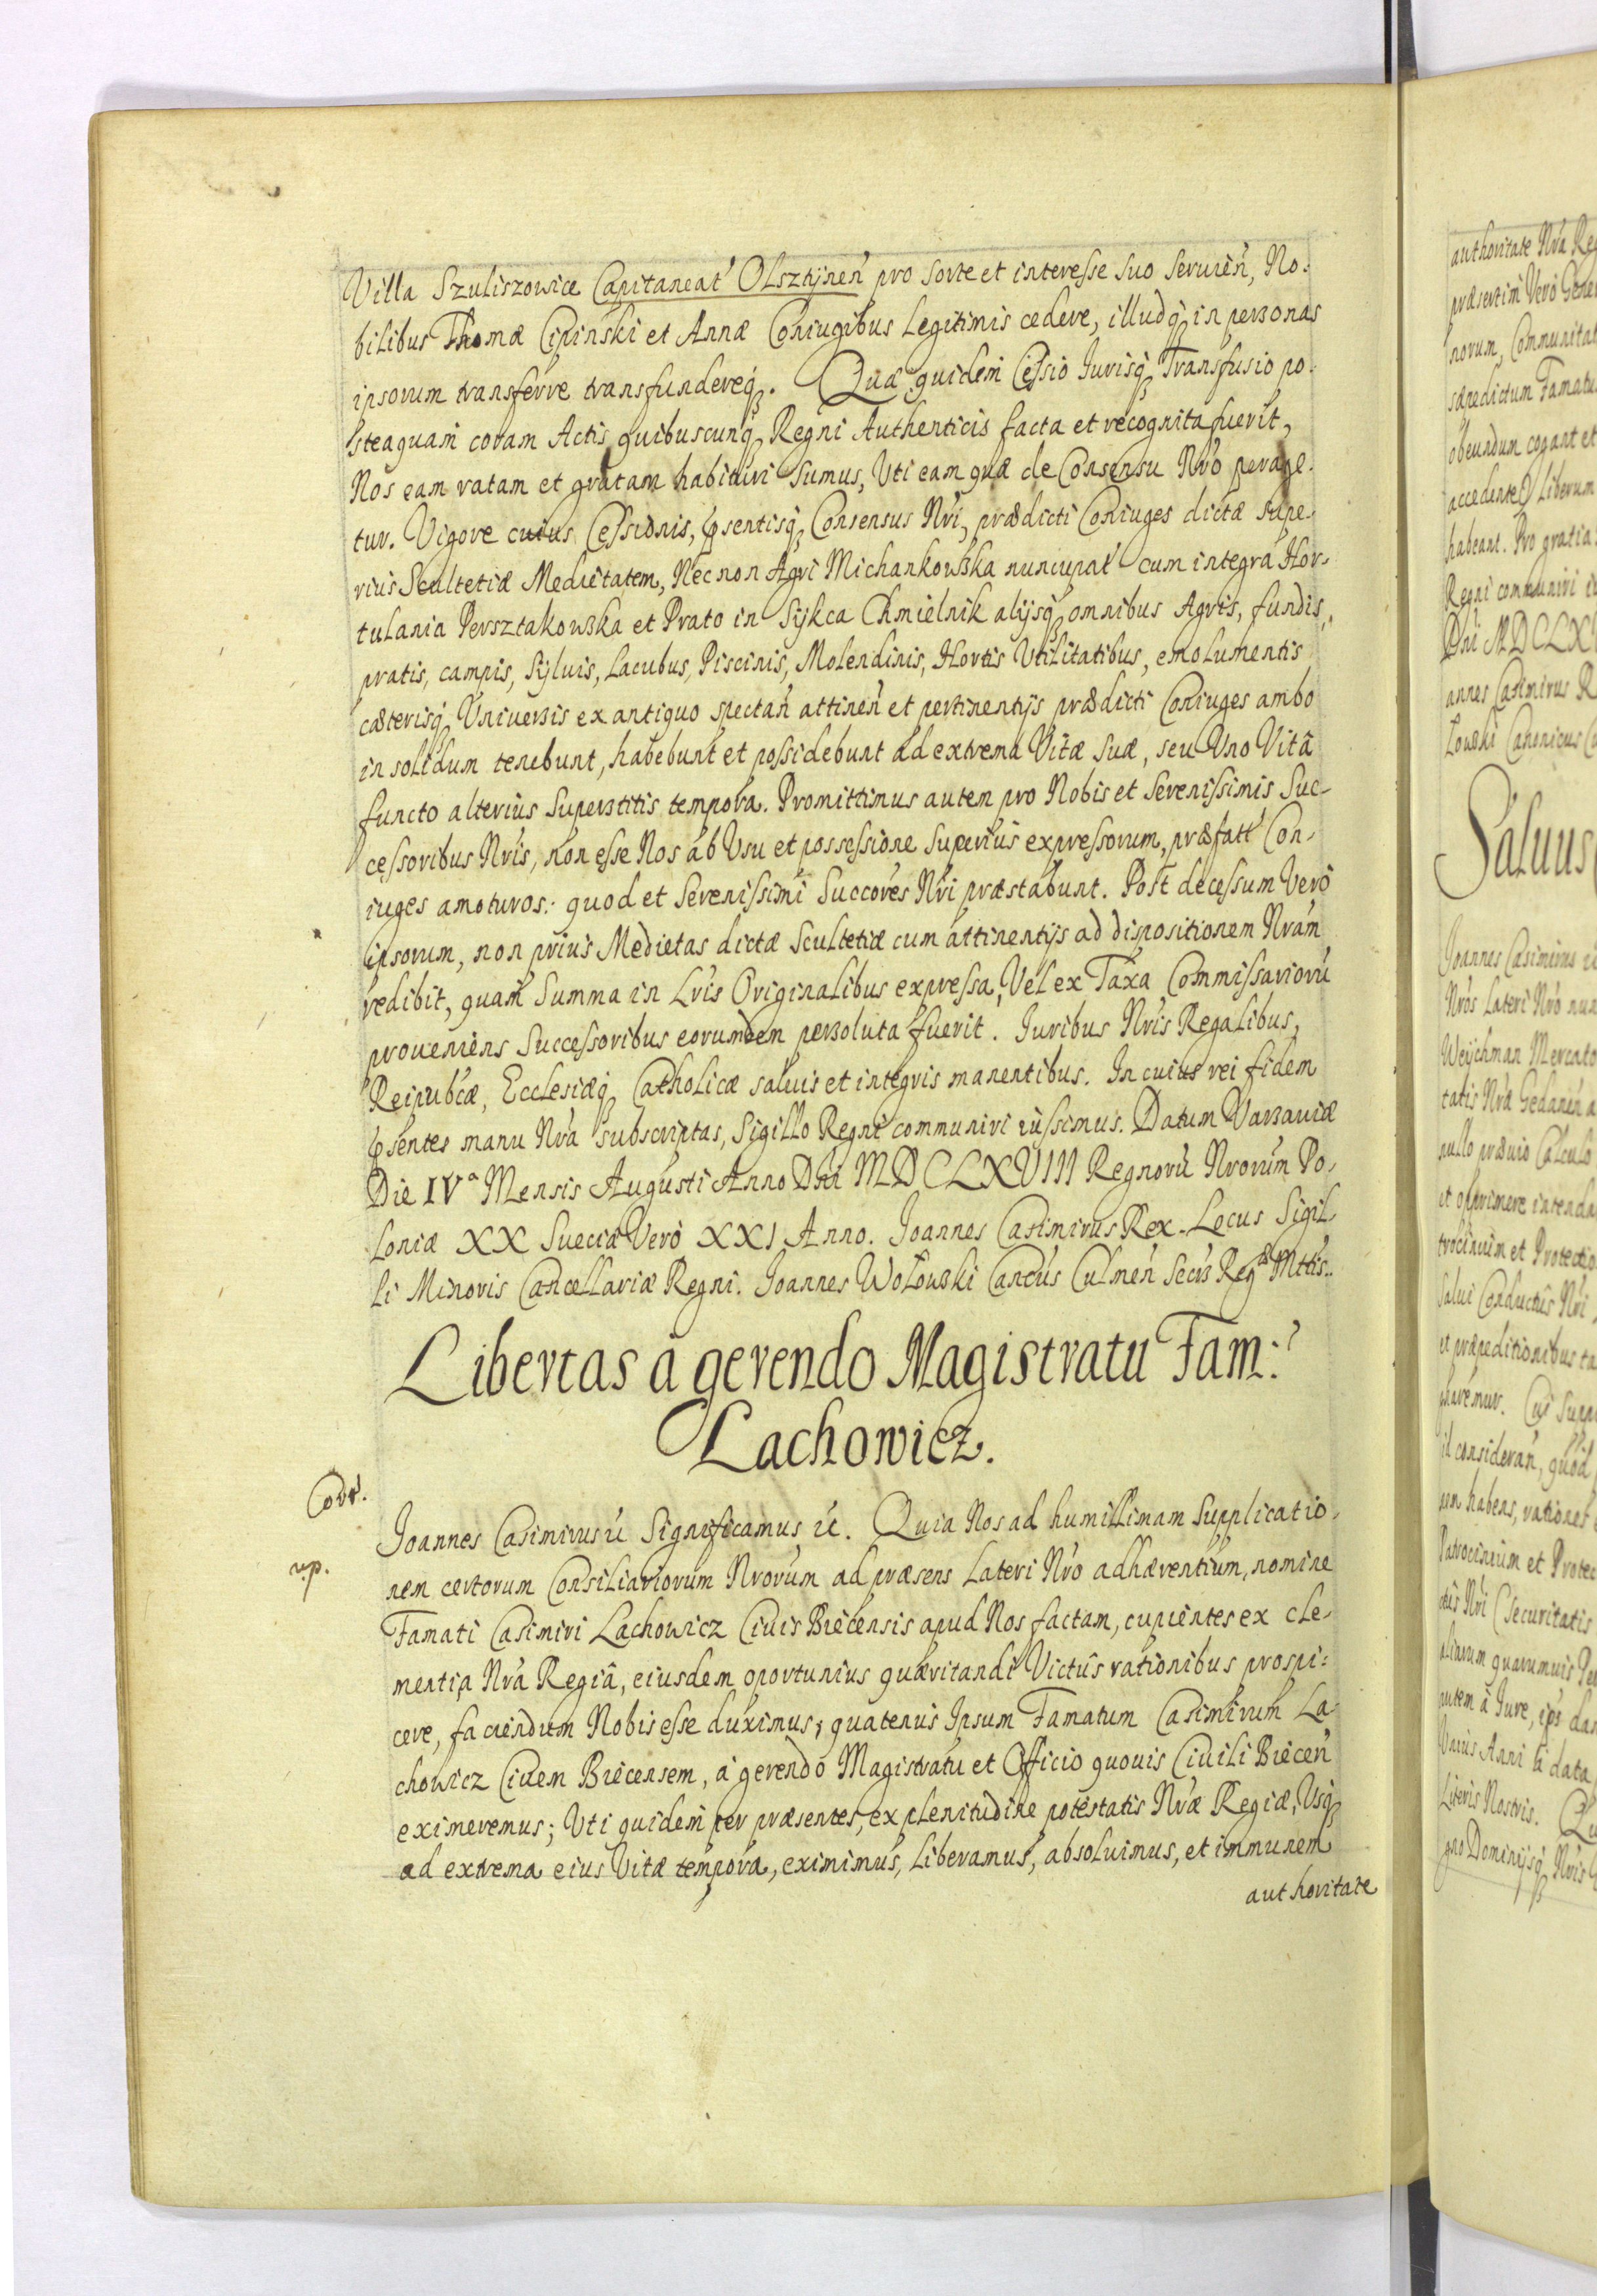 Villa Szuliszowice Capitaneat' Olsztÿnen̄ pro sorte et interesse suo seruien̄, No-
bilibus Thomæ Cipinski et Annæ Coniugibus Legitimis cedere, illudq̧ in personas
ipsorum transferre transfundereq̧. Quæ quidem̄ Cessio Iurisq̧ Transfusio po-
steaquam̄ coram Actis quibuscunq̧ Regni Authenticis facta et recognita fuerit,
Nos eam ratam et gratam habituri sumus, Vti eam quæ de Consensu Nr̄o perage-
tur. Vigore cuius Cessionis, p̄sentisq̧ Consensus Nr̄i, prædicti Coniuges dictæ supe-
rius Scultetiæ Medietatem, Nec non Agri Michankowska nuncupat' cum integra Hor-
tulania Persztakowska et Prato in Sÿkca Chmielnik alijsq̧ omnibus Agris, fundis,
pratis, campis, Sÿluis, Lacubus, Piscinis, Molendinis, Hortis Vtilitatibus, emolumentis
cæterisq̧ Vniuersis ex antiquo spectan̄ attinen̄ et pertinentijs prædicti Coniuges ambo
in solidum tenebunt, habebunt et possidebunt ad extrema Vitæ suæ, seu Vno Vitâ
functo alterius superstitis tempora. Promittimus autem pro Nobis et Serenissimis Suc-
cessoribus Nr̄is, non esse Nos ab Vsu et possessione superius expressorum, præfat' Con-
iuges amoturos: quod et Serenissimi Succores Nr̄i præstabunt. Post decessum Verò
ipsorum, non prius Medietas dictæ Scultetiæ cum attinentijs ad dispositionem Nr̄am
redibit, quam̄ Summa in Lr̄is Originalibus expressa, Vel ex Taxa Commissariorū
proueniens Successoribus eorundem persoluta fuerit. Iuribus Nr̄is Regalibus,
Reipub̄cæ, Ecclesiæq̧ Catholicæ saluis et integris manentibus. In cuius rei fidem
p̄sentes manu Nr̄a subscriptas, Sigillo Regni communiri iussimus. Datum Varsauiæ
Die IVª Mensis Augusti Anno Dn̄i MDCLXVIII Regnorū Nrorum̄ Po-
loniæ XX Sueciæ Verò XXI Anno. Joannes Casimirus Rex. Locus Sigil-
li Minoris Cancellariæ Regni. Joannes Wołowski Can̄cus Culmen̄ Secr̄s Regæ Mttis.
Libertas à gerendo Magistratu Fam:
Lachowicz.
Corr.
Joannes Casimirus &c Significamus &c. Quia Nos ad humillimam Supplicatio-
r.p.
nem certorum Consiliariorum Nrorum̄ ad præsens Lateri Nr̄o adhærentium, nomine
Famati Casimiri Lachowicz Ciuis Biecensis apud Nos factam, cupientes ex cle-
mentia Nr̄a Regiâ, eiusdem oportunius quæritandi Victûs rationibus prospi-
cere, faciendum Nobis esse duximus, quatenus Ipsum Famatum Casimirum La-
chowicz Ciuem Biecensem, à gerendo Magistratu et Officio quouis Ciuili Biecen̄
eximeremus; Vti quidem̄ per præsentes, ex plenitudine potestatis Nr̄æ Regiæ, Vsq̧
ad extrema eius Vitæ tempora, eximimus, liberamus, absoluimus, et immunem
authoritate
authoritate Nr̄a Reg
præsertim̄ Verò Gene
norum, Communitat
sæpedictum Famatu
obeundum cogant et
habeant. Pro gratia
Regni communiri i
Dn̄i MDCLX
annes Casimirus R
Łowski Canonicus C
Saluus
Joannes Casimirus &c
Nr̄os Lateri Nr̄o nun
Weÿchman Mercato
tatis Nr̄æ Gedanen̄ a
nullo præuio Calculo
et opprimere intenda
trocinium et Protectio
Salui Conductûs Nr̄i
et præpeditionibus ta
il consideran̄, quod
pem habens, rationes
Patrocinium et Protec
ctûs Nr̄i Securitatis
aliarum quarumuis Per
autem à Iure, ips dan
Vnius Anni à data
Literis Nostris. Qu
gno Dominijsq̧ Nr̄is